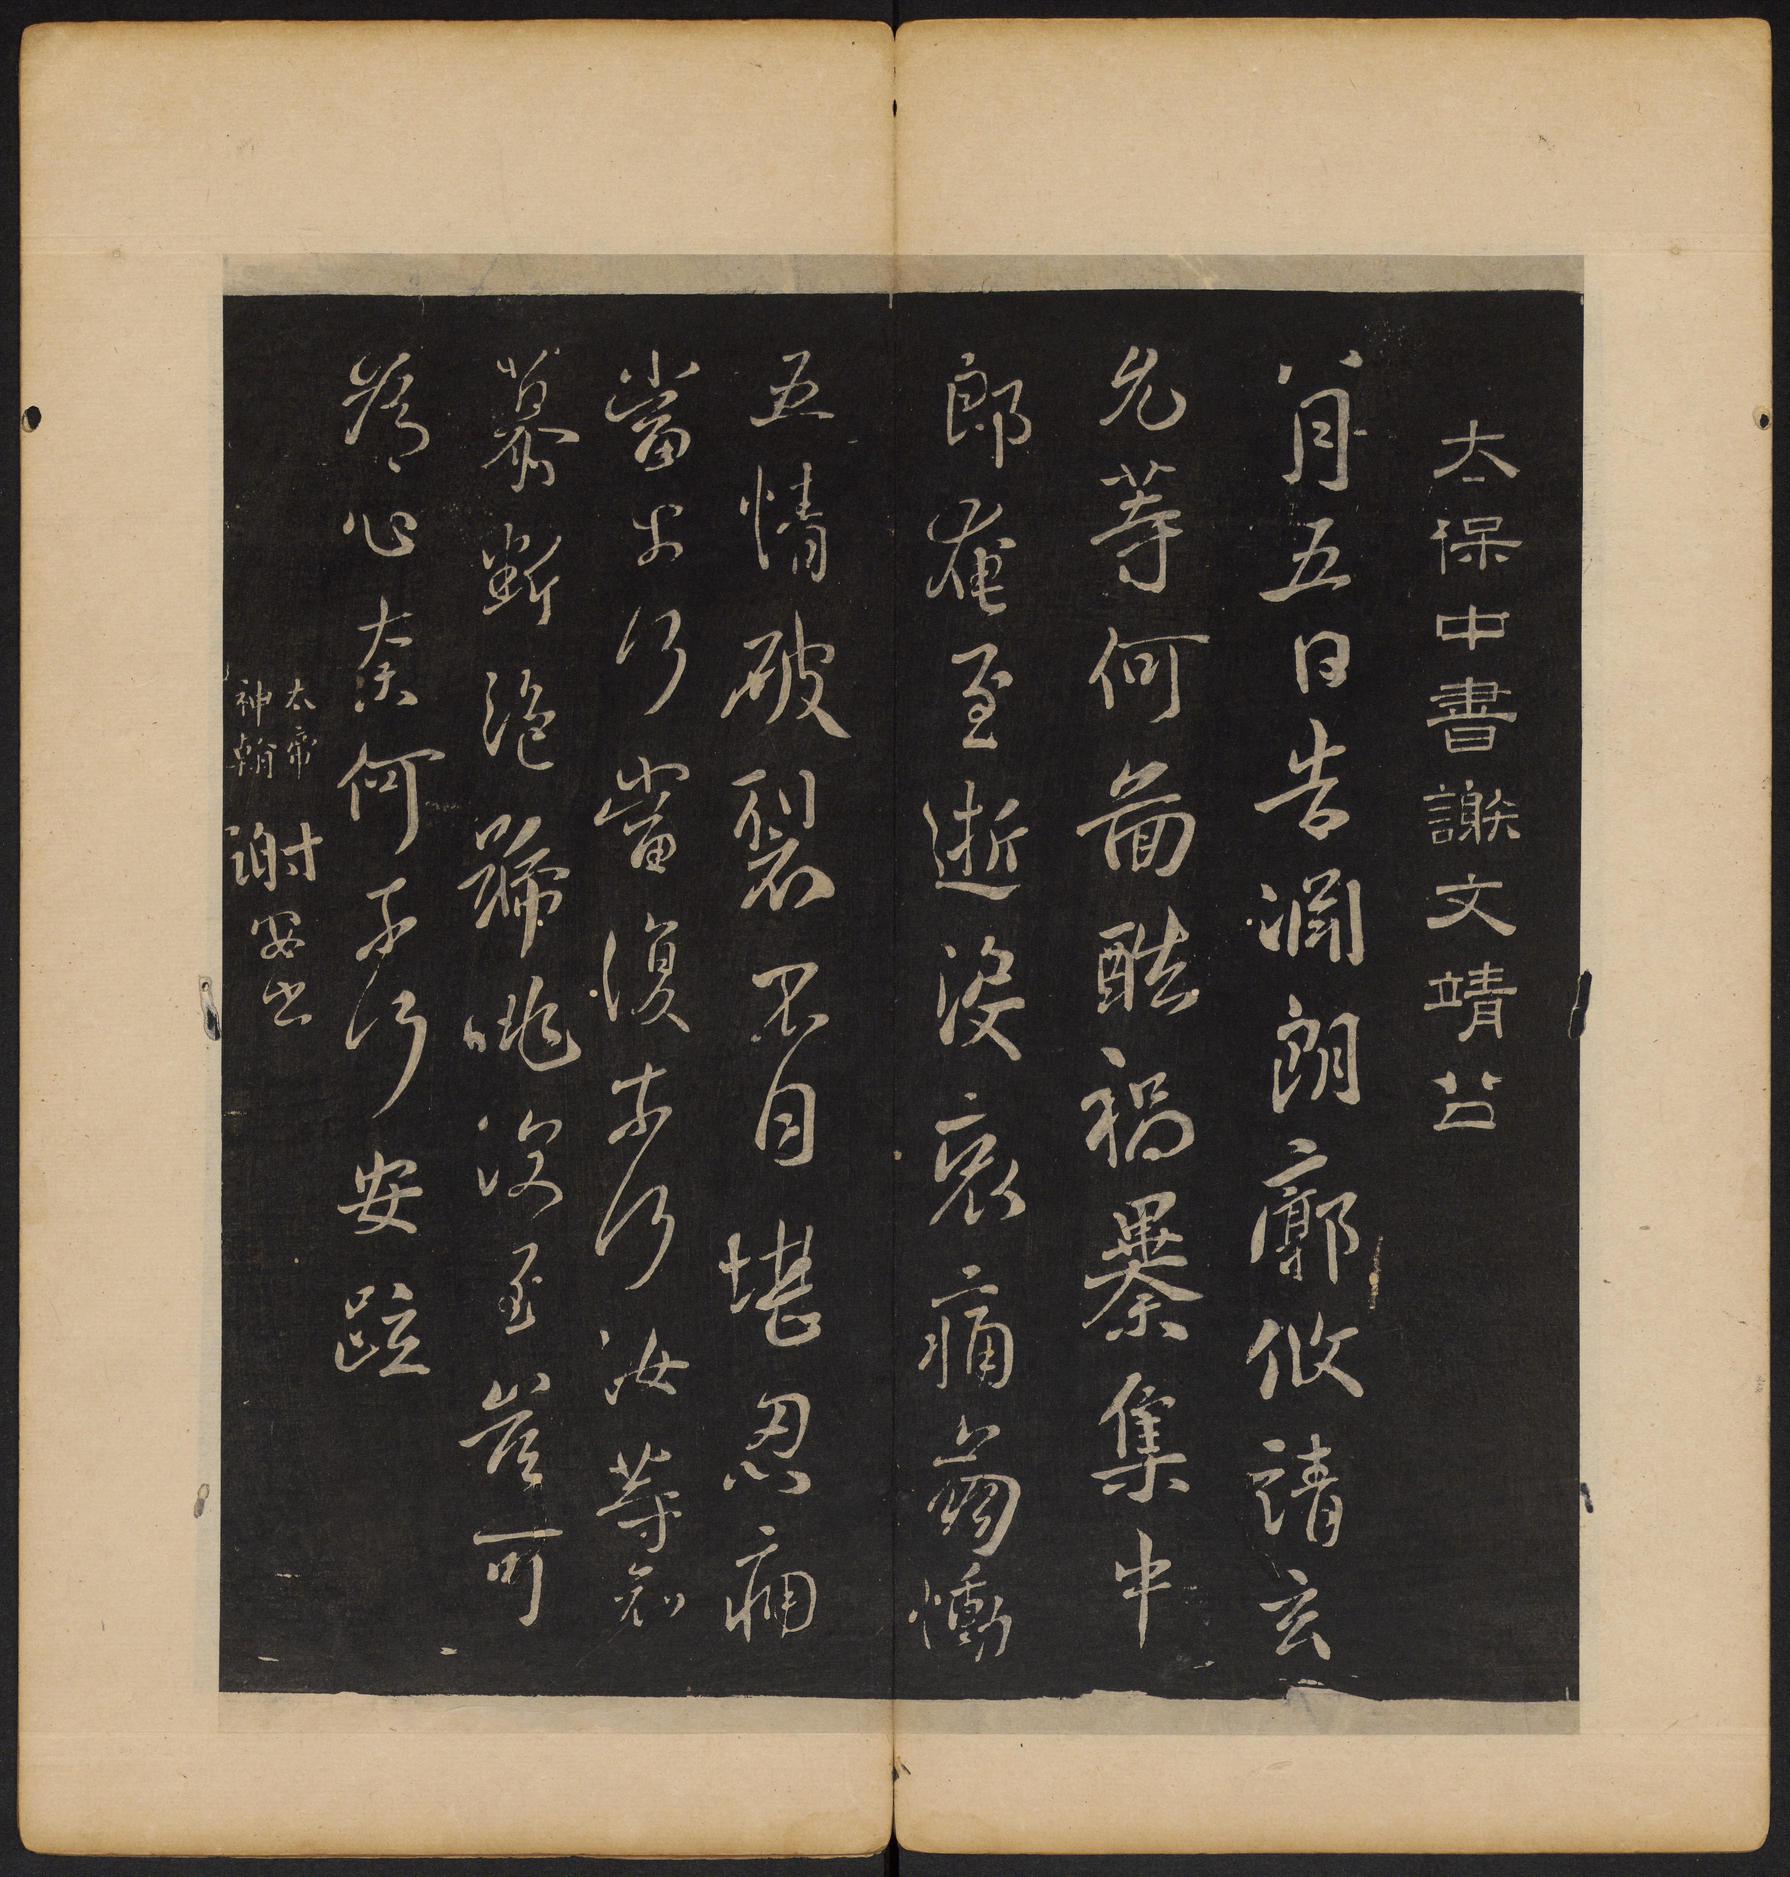 太保中書謝文靖公
八月五日告淵朗廓攸靖玄
允等何圖酷禍暴集中
郎奄至逝沒哀痛崩慟
五情破裂不自堪忍痛
當奈何當復奈何汝等哀
慕斷絕號咷深至豈可
為心奈何奈何安疏
太帝
神翰
謝安書